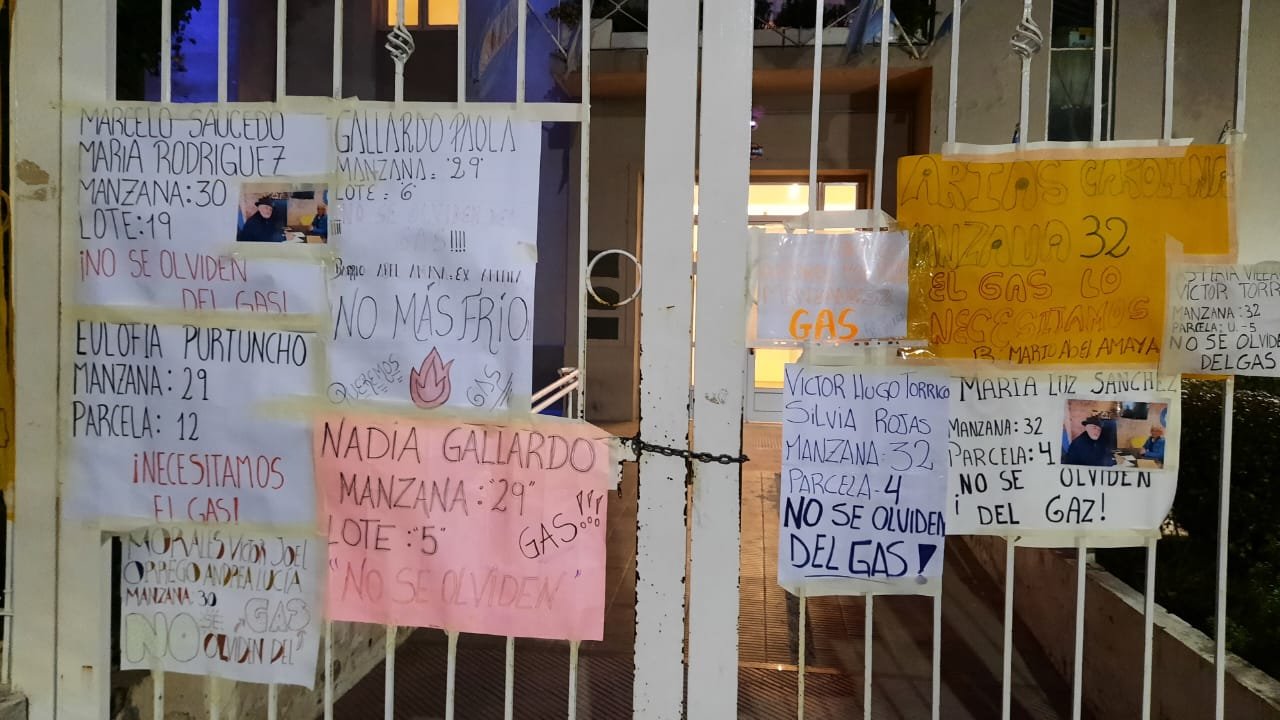 MARCELO SAUCEDO
MARIA RODRIGUEZ
MANZANA: 30
LOTE: 19
¡NO SE OLVIDEN
DEL GAS!
GALLARDO PAOLA
MANZANA: "29"
LOTE: "6"
NO SE OLVIDEN DEL
GAS!!!!
NO MÁS FRÍO
QUEREMOS
GAS
EULOFIA PURTUNCHO
MANZANA: 29
PARCELA: 12
¡NECESITAMOS
EL GAS!
NADIA GALLARDO
MANZANA: "29"
LOTE: "5"
GAS!!!
"NO SE OLVIDEN"
MORALES VICTOR JOEL
ORREGO ANDREA LUCÍA
MANZANA 30
NO SE
OLVIDEN DEL
GAS
GAS
ARIAS CAROLINA
MANZANA 32
EL GAS LO
NECESITAMOS
B. MARIO ABEL AMAYA
VICTOR TORR
MANZANA: 32
PARCELA: U.-5
NO SE OLVIDE
DEL GAS
VICTOR HUGO TORRICO
SILVIA ROJAS
MANZANA: 32
PARCELA-4
NO SE OLVIDEN
DEL GAS!
MARIA LUZ SANCHEZ
MANZANA: 32
PARCELA: 4
¡NO SE OLVIDEN
DEL GAZ!